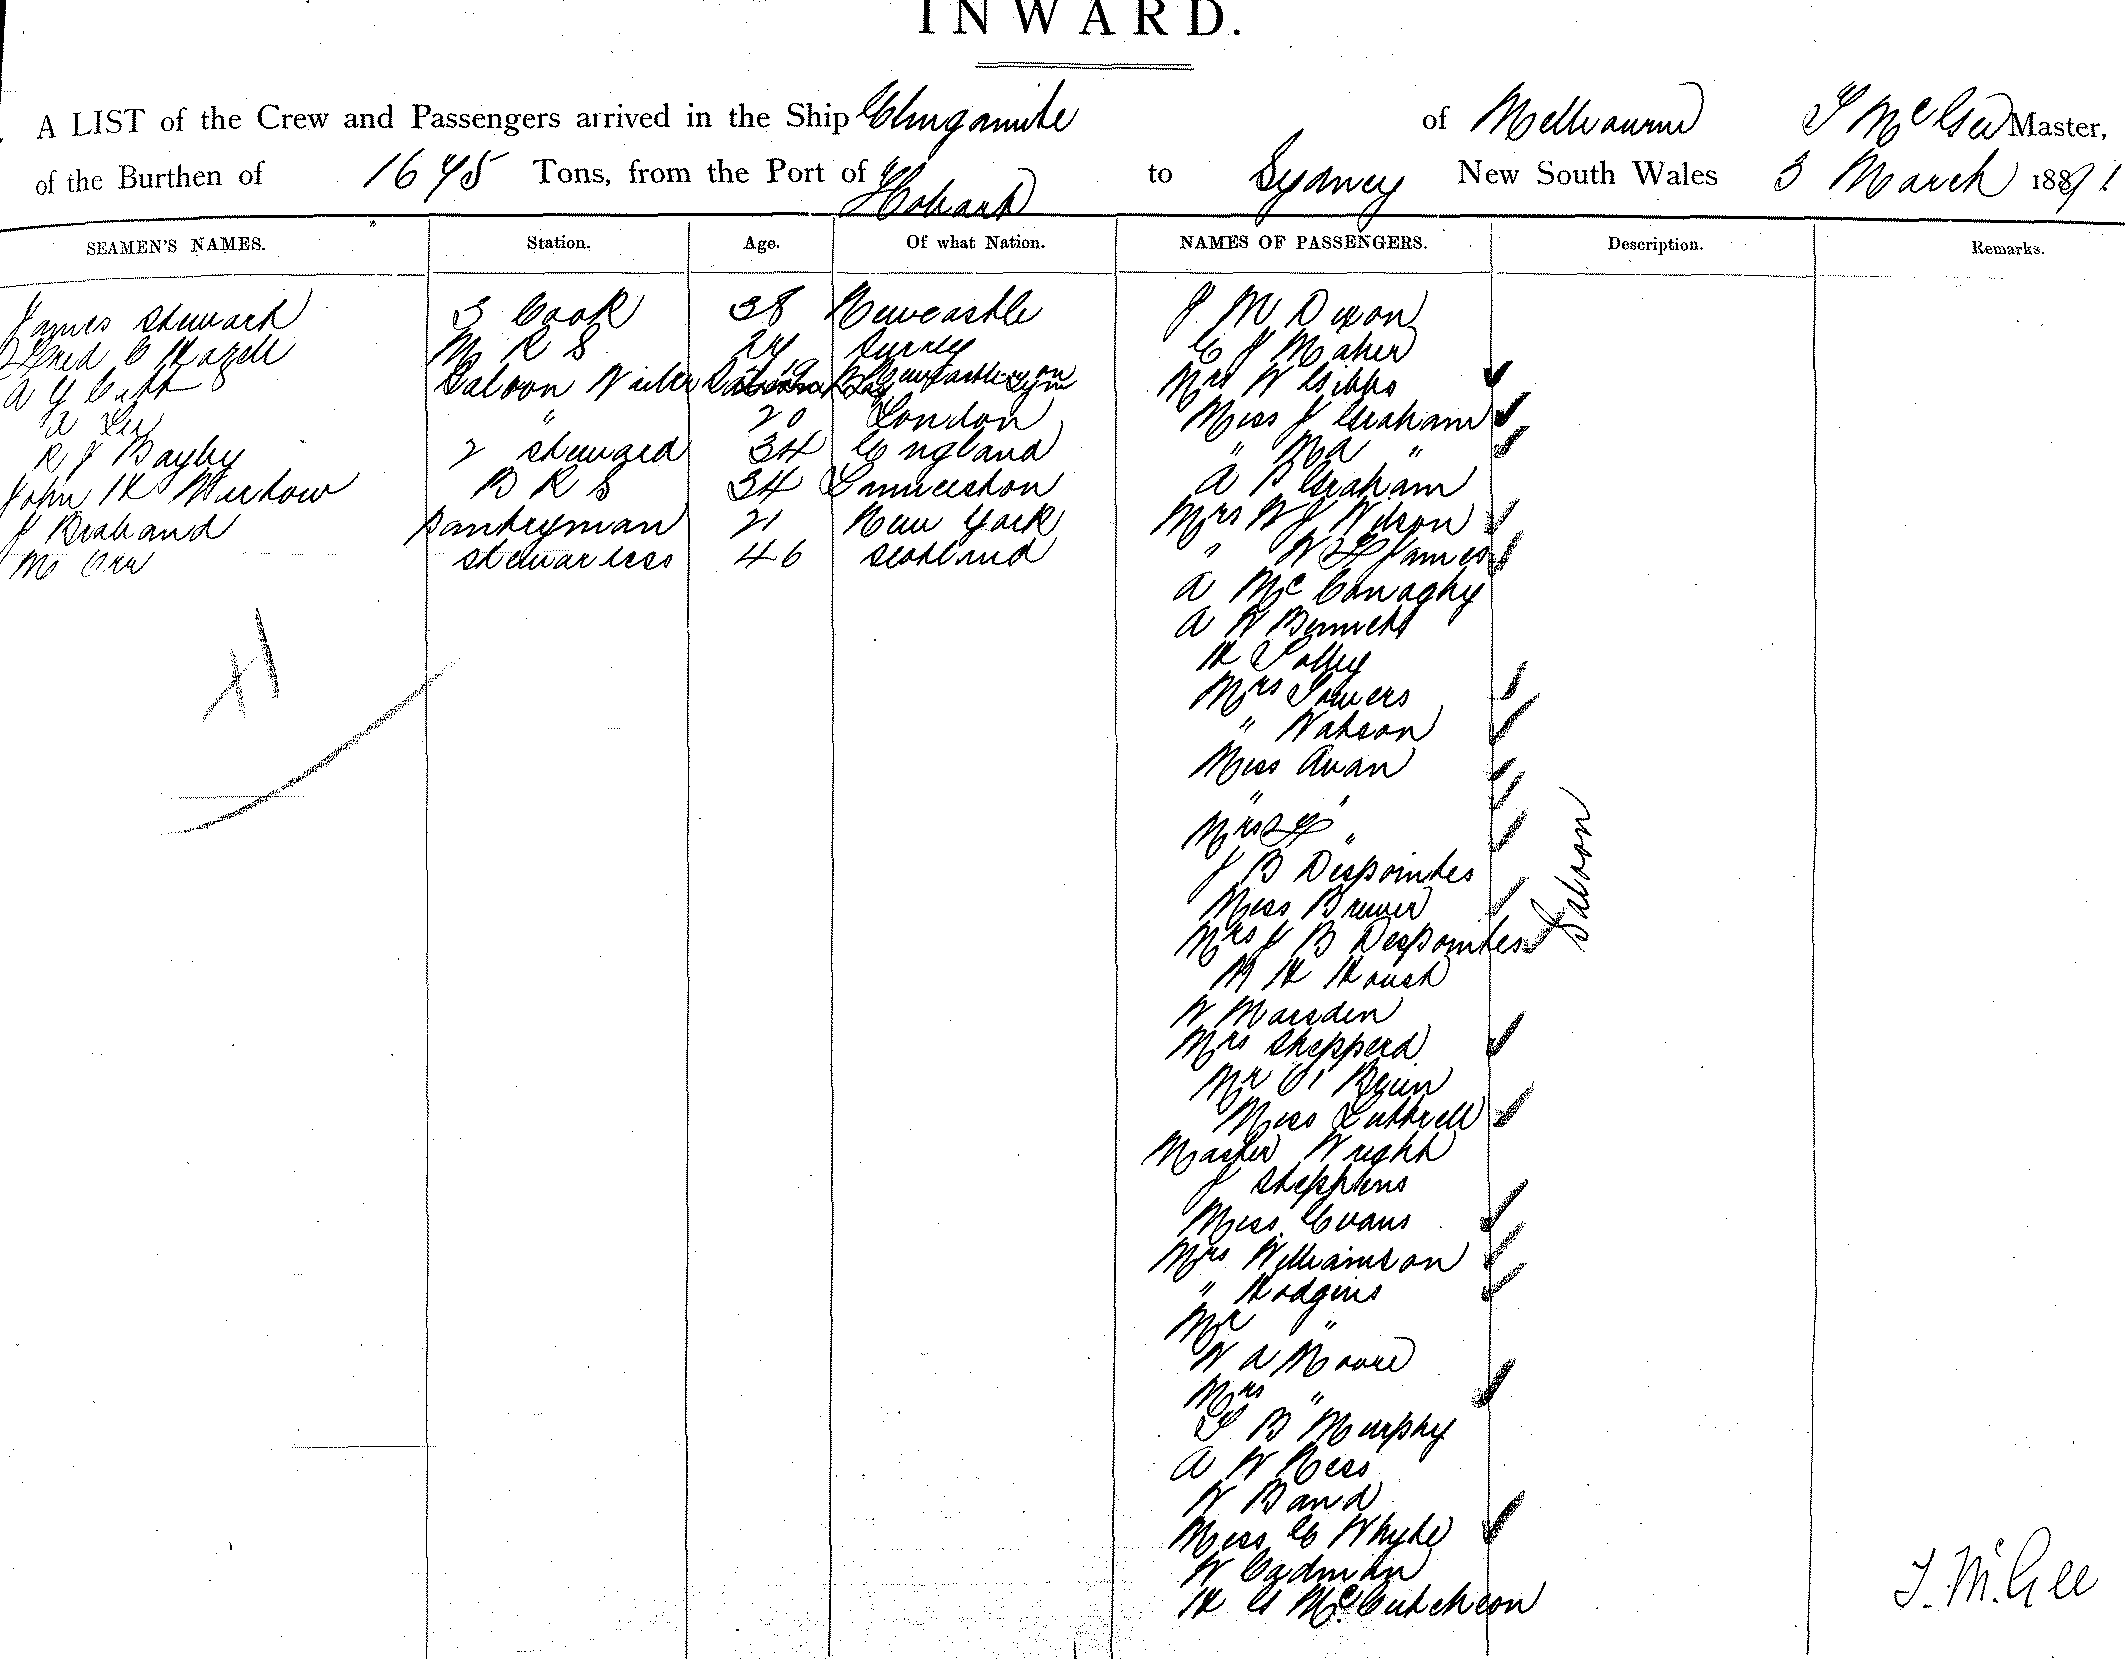 INWARD.
A LIST of the Crew and Passengers arrived in the Ship Elingamite of Melbourne T McGee Master,
of the Burthen of 1675 Tons, from the Port of Hobart to Sydney New South Wales 3 March 1891
SEAMEN'S NAMES. Station. Age. Of what Nation. NAMES OF PASSENGERS. Description. Remarks.
James Stewart 3 Cook 38 Newcastle J M Dixon
Fred C Hazell M R S 24 Surrey C J Maher
A G Saloon Waiter Mrs W Gibbs
A Lee " 20 London Miss J Graham
R J Bayley 2 Steward 34 England " Ma "
John H B R S 34 Launceston A P Graham
J Braband Pantryman 21 New York Mrs W J Wilson
M Orr Stewardess 46 Scotland " W H James
A McConaghy
A W Bennett
H Solley
Mrs Towers
" Watson
Miss Avan
" "
Mrs H "
J B Despointes
Miss Brewer
Mrs J B Despointes
Saloon
H H
W Marsden
Mrs Shepperd
Mr O'Brien
Miss Luttrell
Master Wright
J Stephens
Miss Evans
Mrs Williamson
" Hodgins
Mr "
W A Moore
Mrs "
T B Murphy
A W Ross
W Band
Miss C Whyte
W Cadman
H G McCutcheon
T. McGee